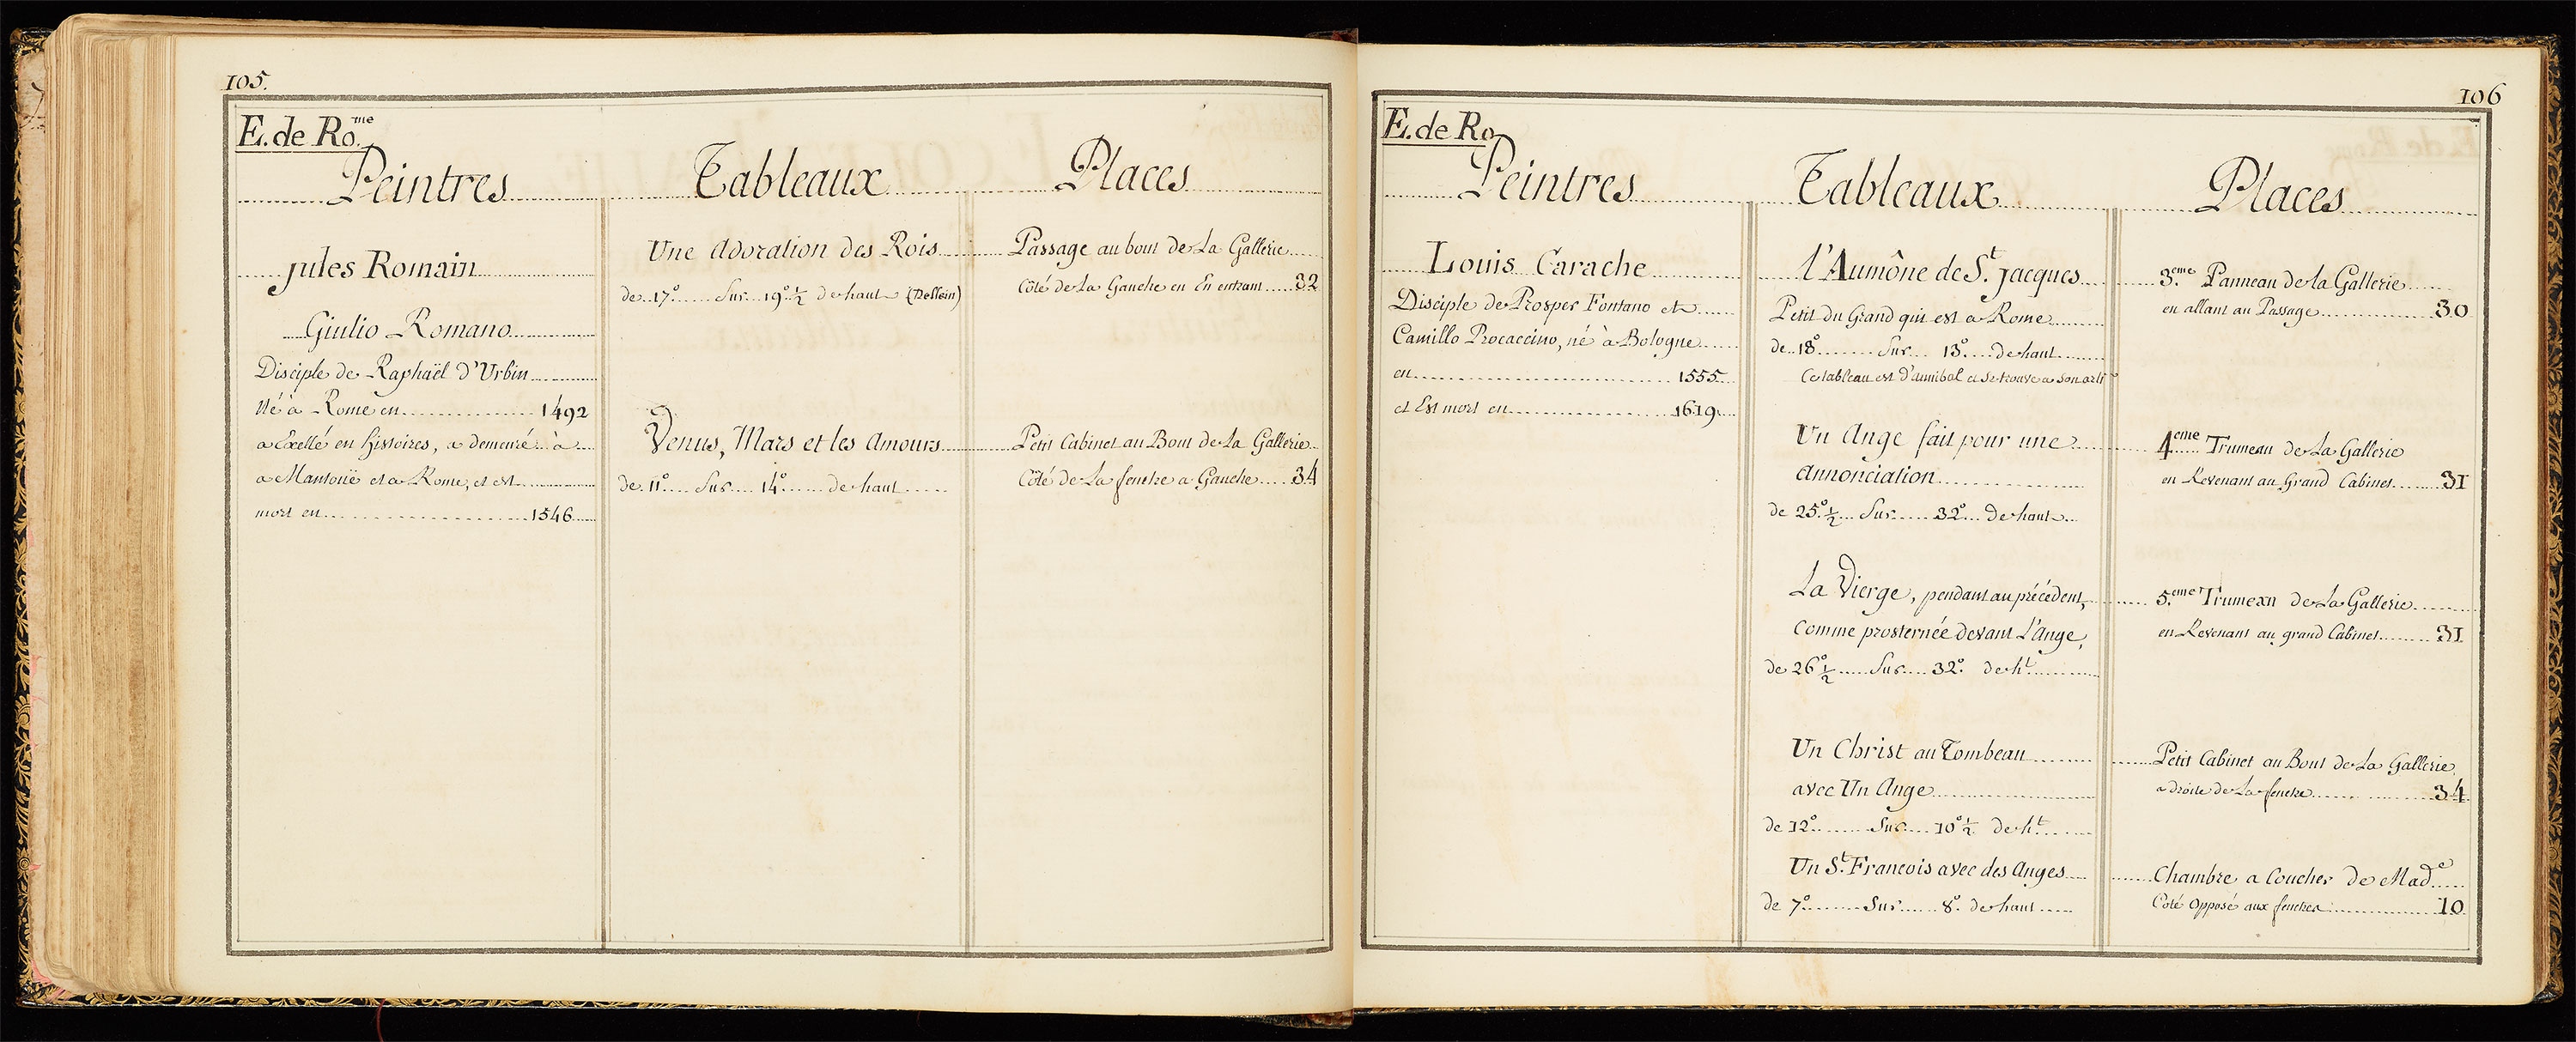 105.
E. de Ro.me
Peintres
Tableaux
Places
Jules Romain
Giulio Romano
Disciple de Raphaël d'Urbin
Né à Rome en 1492
a Exellé en histoires, a demeuré à
a Mantoüe et a Rome, et est
mort en 1546
Une Adoration des Rois
de 17.° Sur 19.° ½ de haut (Dessein)
Venus, Mars et les Amours
de 11.° Sur 14.° de haut
Passage au bout de La Gallerie
Côté de La Gauche en En entrant 32
Petit Cabinet au Bout de La Gallerie
Côté de La fenetre a Gauche 34
106
E. de Ro.
Peintres
Tableaux
Places
Louis Carache
Disciple de Prosper Fontano et
Camillo Procaccino, né à Bologne
en 1555
et Est mort en 1619
l'Aumône de St. Jacques
Petit du Grand qui est a Rome
de 18.° Sur 13.° de haut
Ce tableau est d'annibal et se trouve a son arti
Un Ange fait pour une
annonciation
de 25.° ½ Sur 32.° de haut
La Vierge, pendant au précédent,
Comme prosternée devant L'Ange,
de 26.° ½ Sur 32.° de ht.
Un Christ au Tombeau
avec Un Ange
de 12.° Sur 10.° ½ de ht.
Un St. Francois avec des Anges
de 7.° Sur 8.° de haut
3.eme Panneau de la Gallerie
en allant au Passage 30
4eme Trumeau de La Gallerie
en Revenant au Grand Cabinet 31
5.eme Trumeau de La Gallerie
en Revenant au grand Cabinet 31
Petit Cabinet au Bout de La Gallerie
a droite de La fenetre 34
Chambre a Coucher de Made
Coté Opposé aux fenetres 10